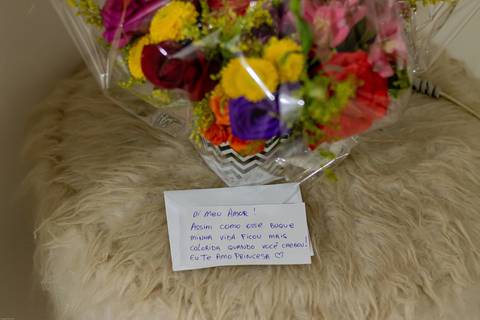 Oi MEU AMOR!
ASSIM COMO ESSE BUQUE
MINHA VIDA FICOU MAIS
COLORIDA QUANDO VOCÊ CHEGOU!
EU TE AMO PRINCESA ♡